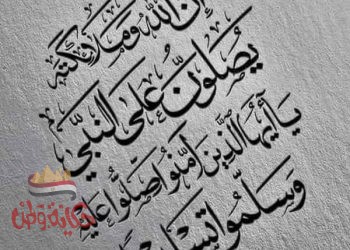 إن الله وملائكته
يصلون على النبي
يا أيها الذين آمنوا صلوا عليه
وسلموا تسليما
حكاية وطن